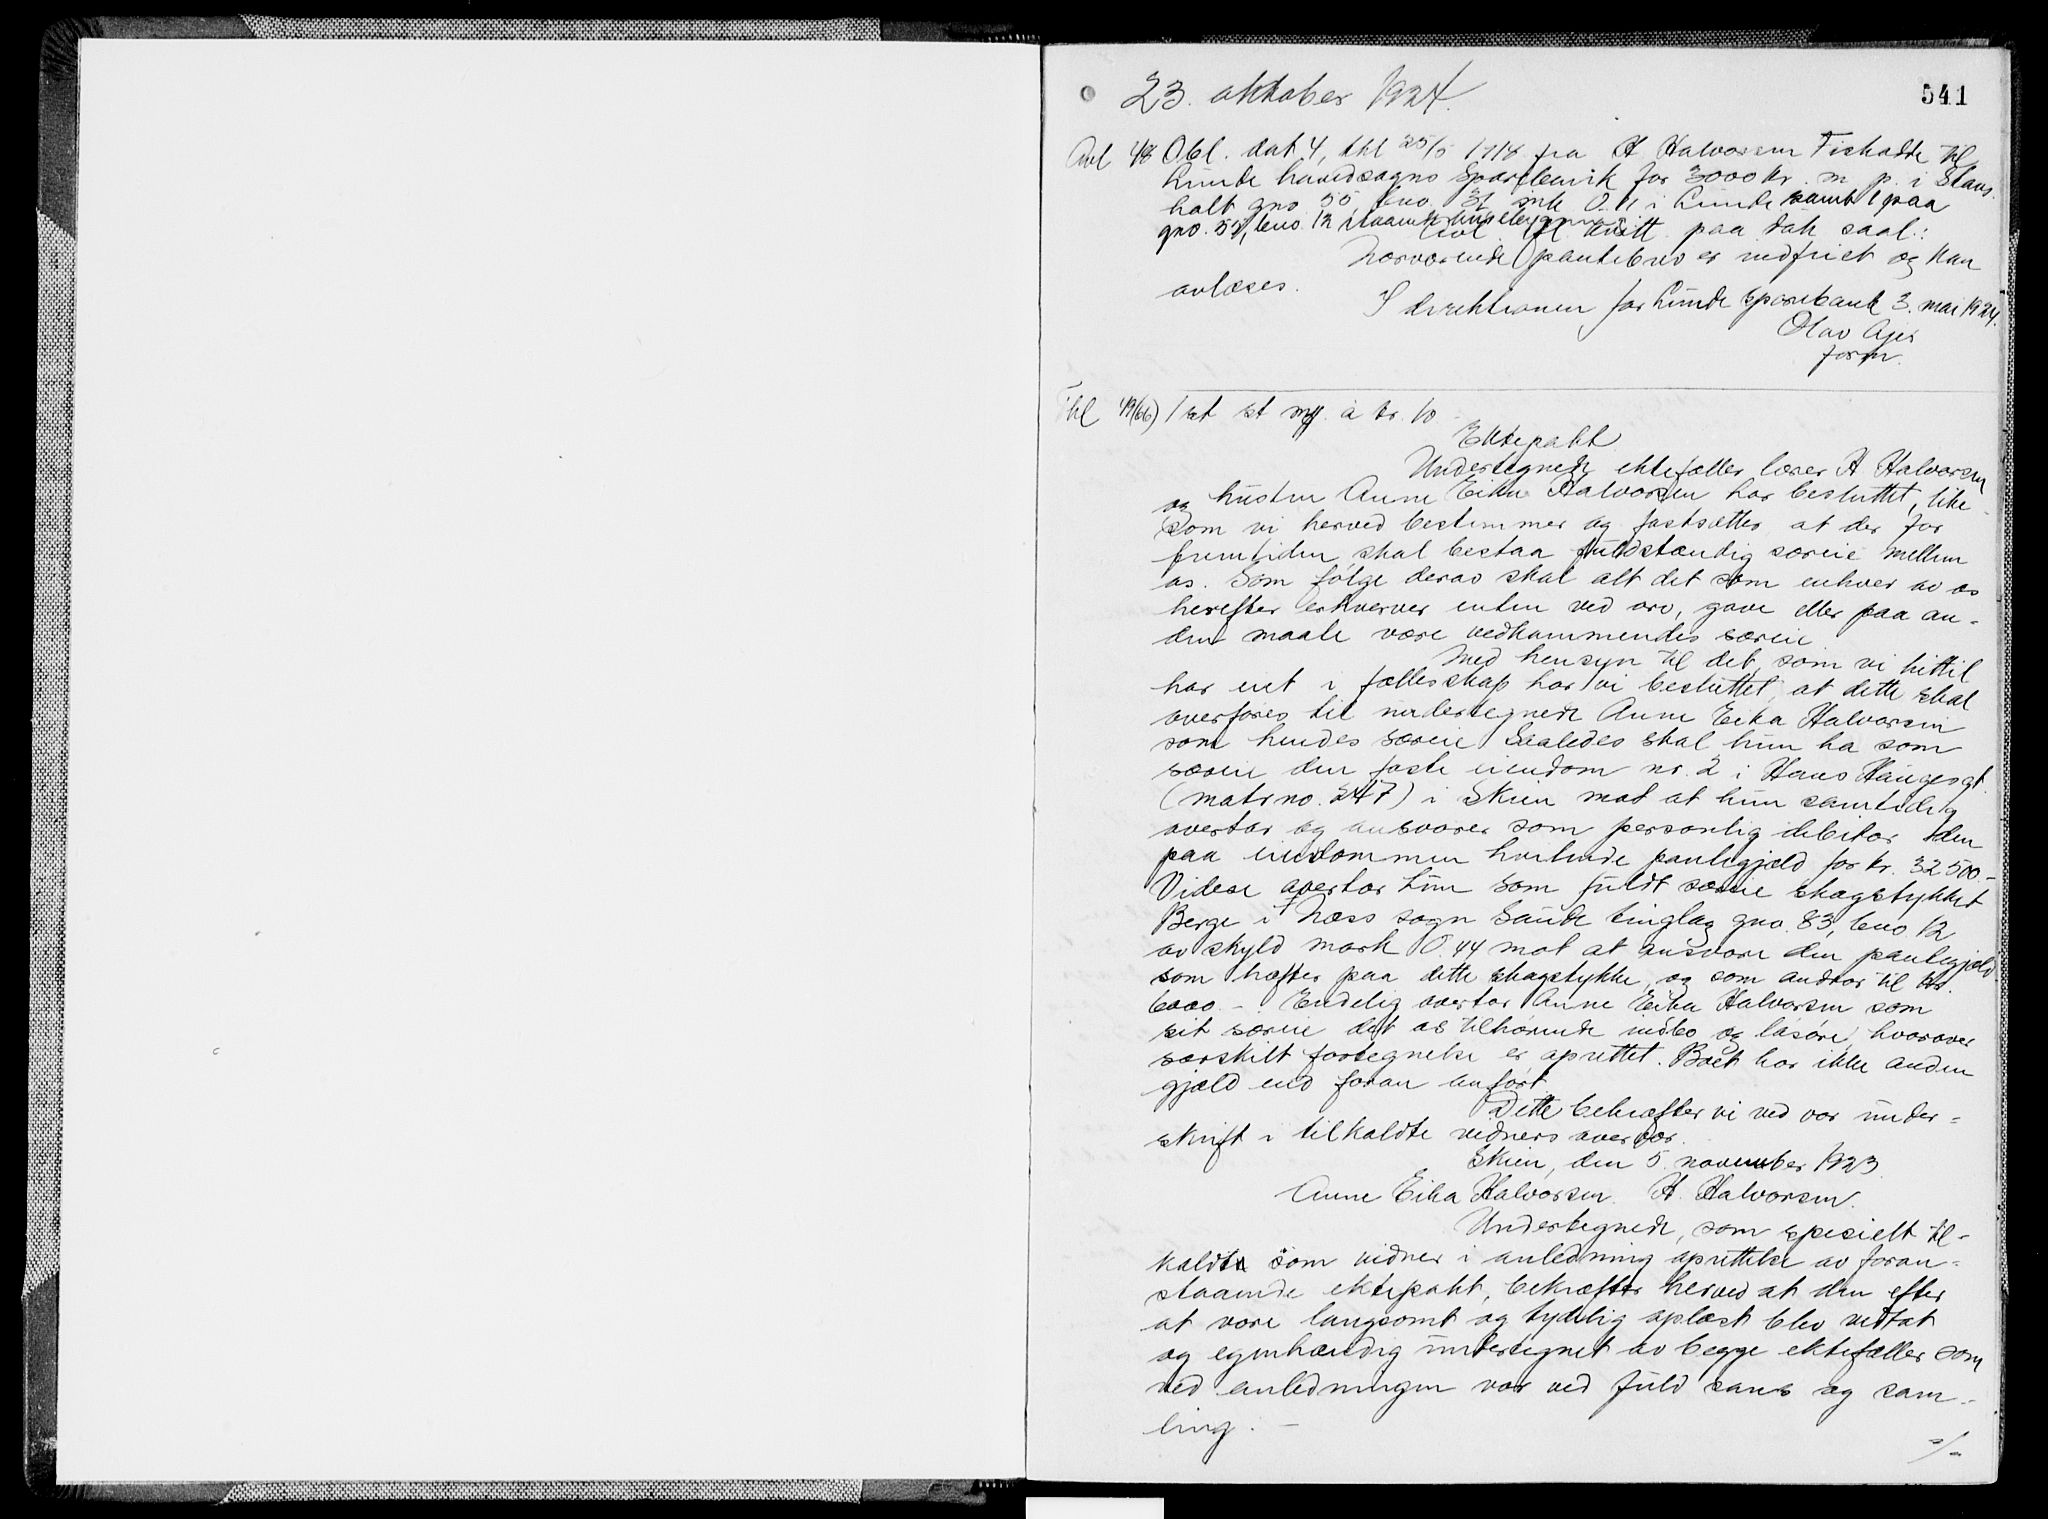 541
23. oktober 1924.
Avl 48 Obl. dat 4, thl 25/5 1918 fra H Halvorsen til
Lunde hovedsogns Sparebank for 3000 kr. m. p. i
holt gno 55, bno. 31 mk 0.11 i Lunde samt 1 paa
gno. 55, bno. 12
Avl ifl kvitt. paa dok saal.:
Nærværende pantebrev er indfriet og kan
avlæses.
I direktionen for Lunde Sparebank 3. mai 1924.
Olav Ajer
form.
Thl 49(66) 1 st st mg. à kr. 10
Ektepakt
Undertegnede ektefæller lærer H Halvorsen
og hustru Anne Eika Halvorsen har besluttet, like-
som vi herved bestemmer og fastsætter at der for
fremtiden skal bestaa fuldstændig særeie mellem
os. Som følge derav skal alt det som enhver av os
herefter erhverver enten ved arv, gave eller paa an-
den maate være vedkommendes særeie
Med hensyn til det, som vi hittil
har eiet i fællesskap har vi besluttet, at dette skal
overføres til undertegnede Anne Eika Halvorsen
som hendes særeie Saaledes skal hun ha som
særeie den faste eiendom nr. 2 i Hans Haugesgt.
(matr no. 247) i Skien mot at hun samtidig
overtar og ansvarer som personlig debitor den
paa eiendommen heftende pantegjæld for kr. 32500-
Videre overtar hun som fuldt særeie skogstykket
Berge i Næss sogn Saude tinglag gno. 83, bno 12
av skyld mark 0.44 mot at ansvare den pantegjæld
som hæfter paa dette skogstykke, og som andrar til kr.
6000.- Endelig overtar Anne Eika Halvorsen som
sit særeie det os tilhørende indbo og løsøre, hvorover
særskilt fortegnelse er oprettet. Boet har ikke anden
gjæld end foran anført
Dette bekræfter vi ved vor under-
skrift i tilkaldte vidners overvær.
Skien, den 5. november 1923
Anne Eika Halvorsen. H. Halvorsen.
Undertegnede, som specielt til-
kaldte som vidner i anledning oprettelse av foran-
staaende ektepakt, bekræfter herved at den efter
at være langsomt og tydelig oplæst blev vedtat
og egenhændig undertegnet av begge ektefæller som
ved anledningen var ved fuld sans og sam-
ling. -